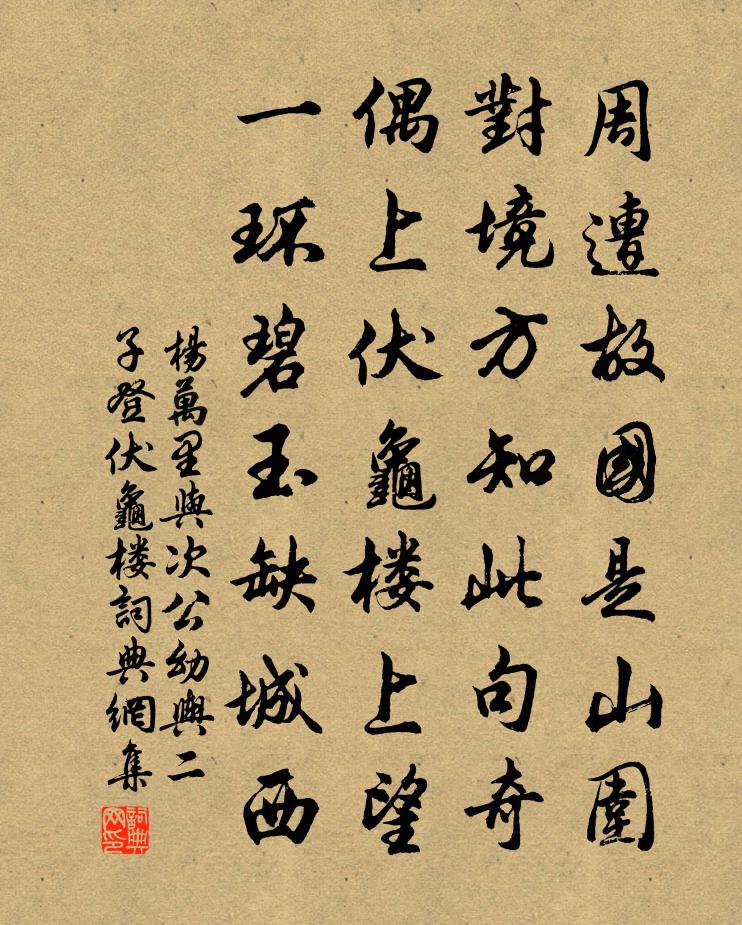 周遭故國是山圍
對境方知此句奇
偶上伏龜楼上望
一环碧玉缺城西
楊萬里與次公幼輿二
子登伏龜楼詞典網集
詞典
网印